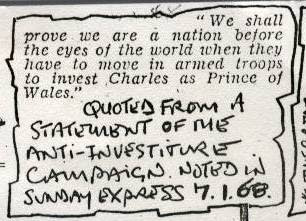 "We shall
prove we are a nation before
the eyes of the world when they
have to move in armed troops
to invest Charles as Prince of
Wales."
QUOTED FROM A
STATEMENT OF THE
ANTI-INVESTITURE
CAMPAIGN. NOTED IN
SUNDAY EXPRESS 7.1.68.